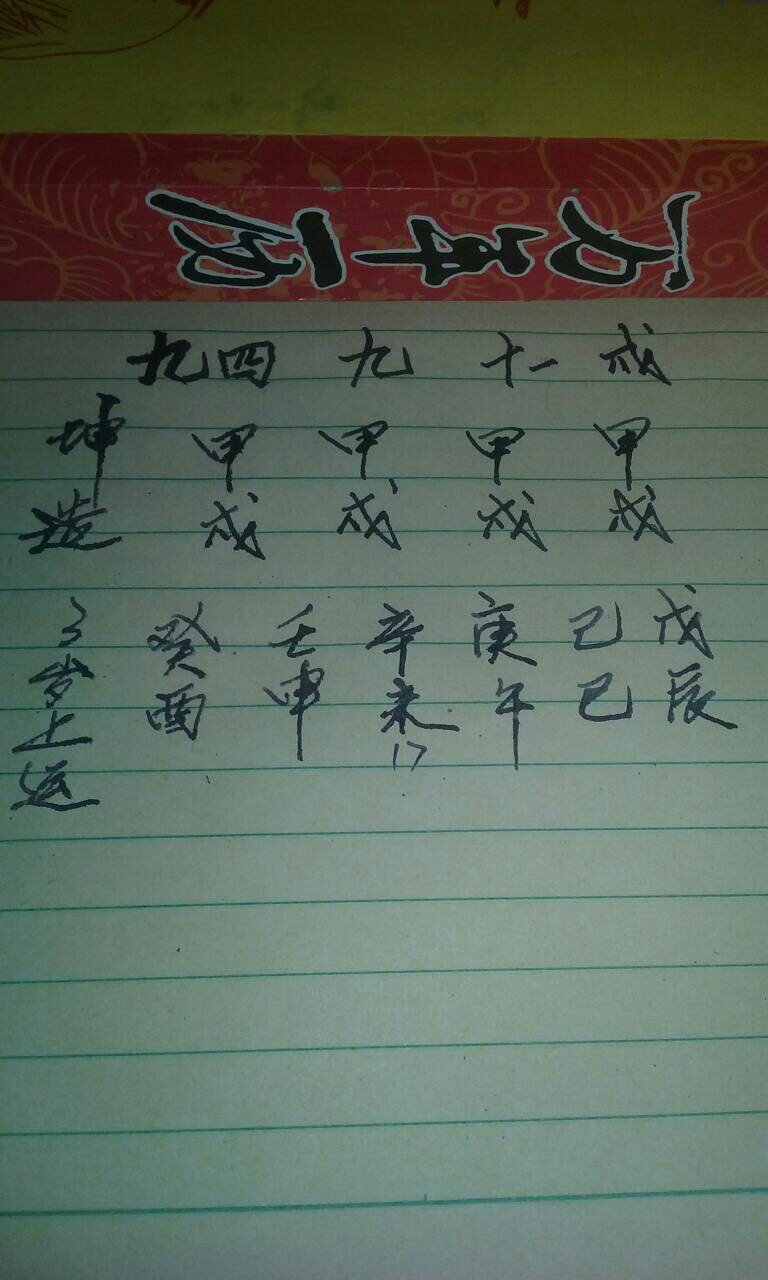 九四 九 十一 戌
坤造 甲 甲 甲 甲
戌 戌 戌 戌
3岁上运 癸 壬 辛 庚 己 戊
酉 申 未 午 巳 辰
17